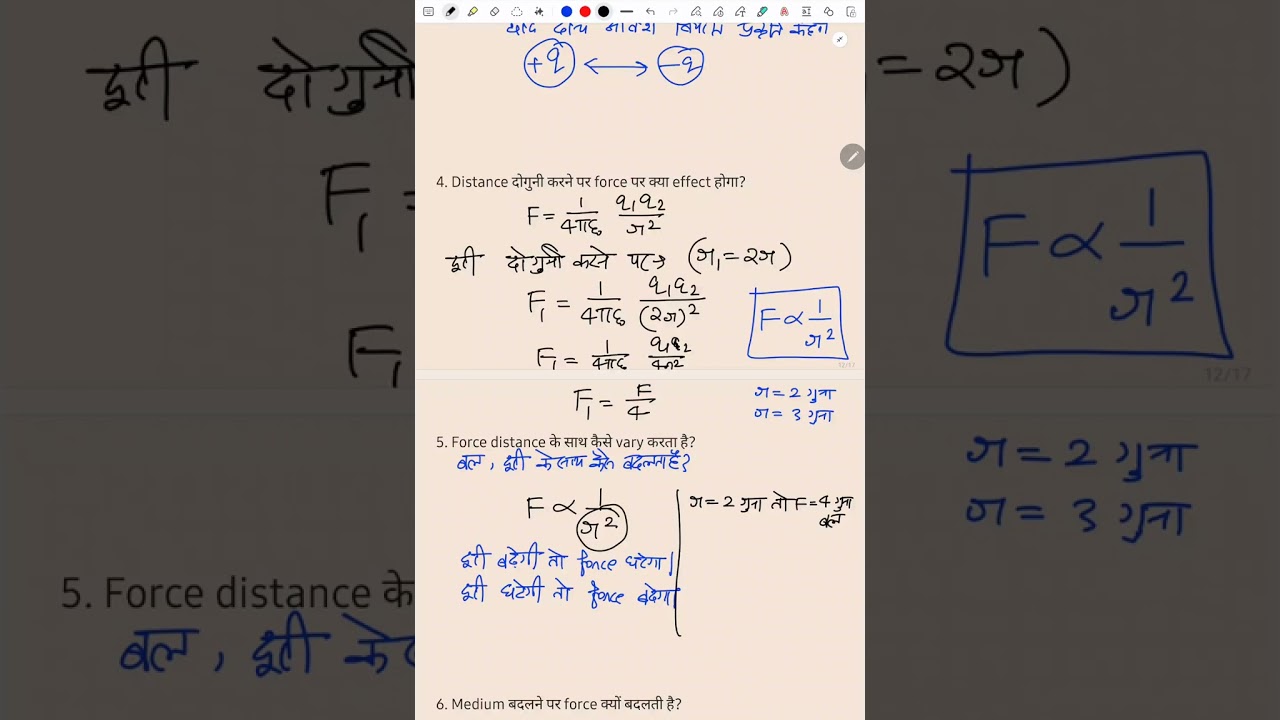 यदि दोनों आवेश विपरीत प्रकृति के होंगे
+q ⟷ −q
4. Distance दोगुनी करने पर force पर क्या effect होगा?
F = 1/4πε q₁q₂/r²
दूरी दोगुनी करने पर → (r₁ = 2r)
F₁ = 1/4πε q₁q₂/(2r)²
F ∝ 1/r²
F₁ = 1/4πε q₁q₂/4r²
12/17
F₁ = F/4
r = 2 गुना
r = 3 गुना
5. Force distance के साथ कैसे vary करता है?
बल, दूरी के साथ कैसे बदलता है?
F ∝ 1/r²
r = 2 गुना तो F = 4 गुना
बल
दूरी बढ़ेगी तो force घटेगा।
दूरी घटेगी तो force बढ़ेगा।
6. Medium बदलने पर force क्यों बदलती है?